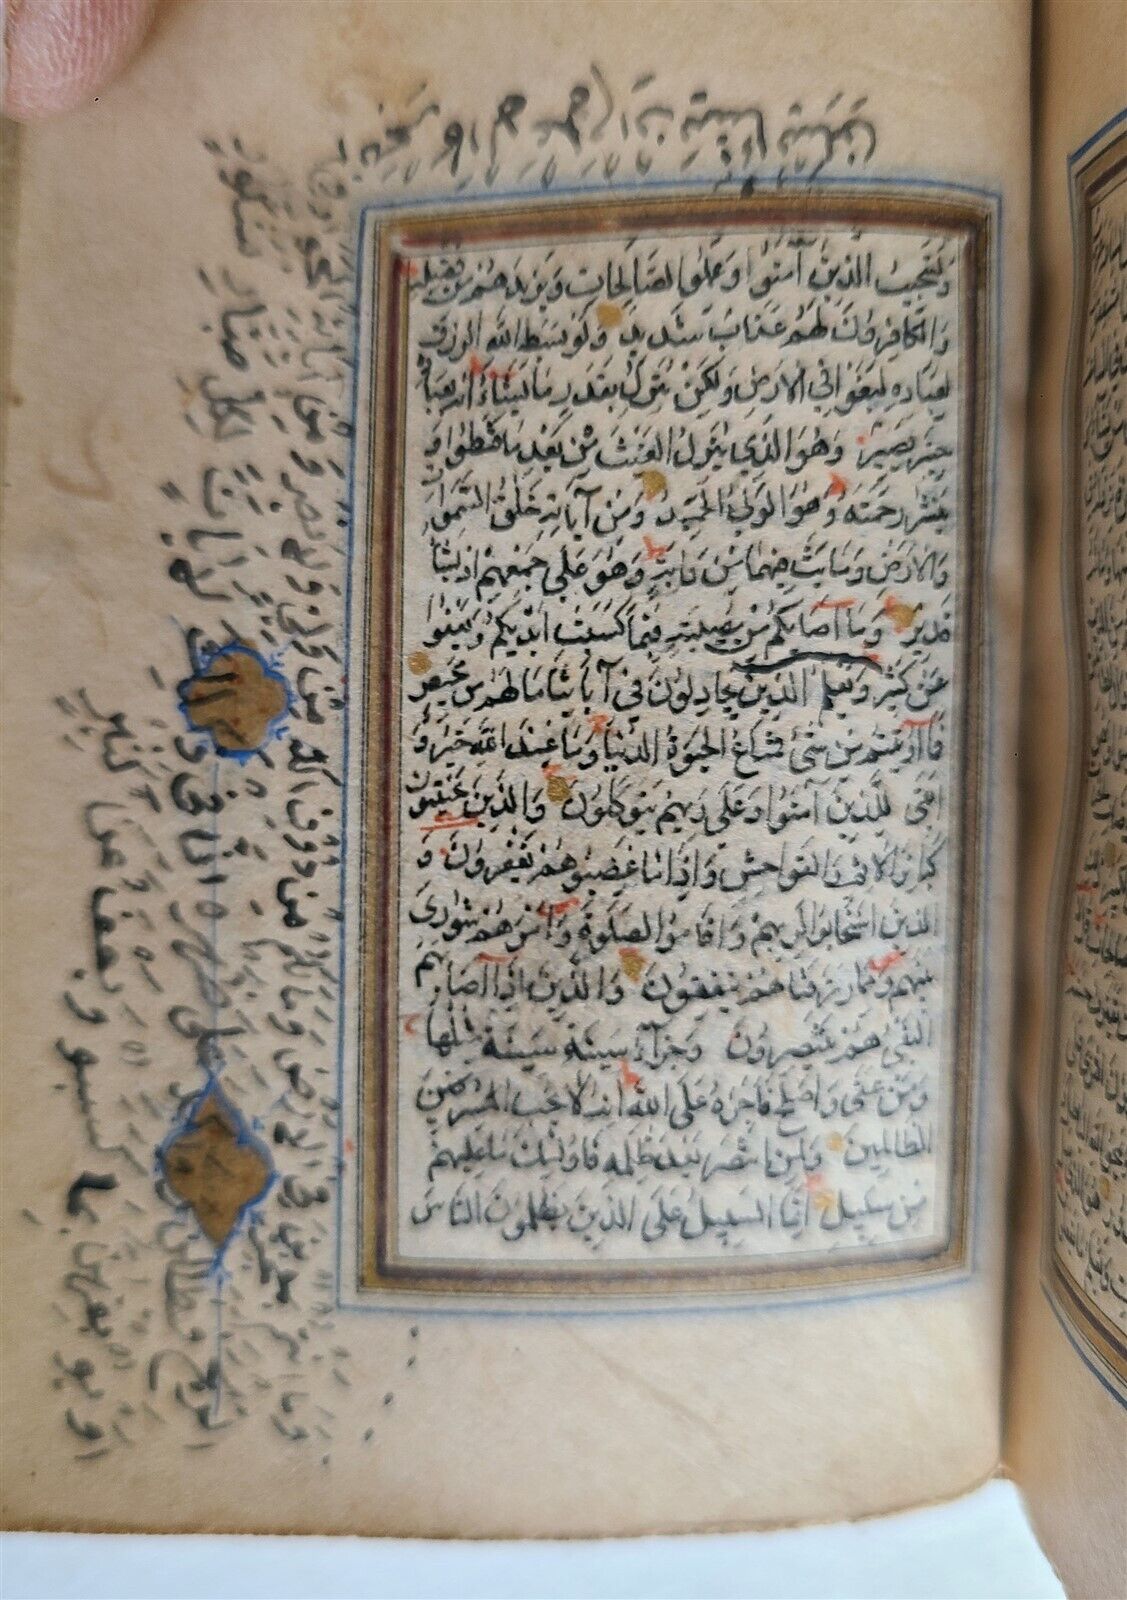 ويستجيب الذين آمنوا وعملوا الصالحات ويزيدهم من فضله
والكافرون لهم عذاب شديد ولو بسط الله الرزق
لعباده لبغوا في الارض ولكن ينزل بقدر ما يشاء انه بعباده
خبير بصير وهو الذي ينزل الغيث من بعد ما قنطوا و
ينشر رحمته وهو الولي الحميد ومن آياته خلق السموات
والارض وما بث فيهما من دابة وهو على جمعهم اذا يشاء
قدير وما اصابكم من مصيبة فبما كسبت ايديكم ويعفوا
عن كثير ويعلم الذين يجادلون في آياتنا ما لهم من محيص
فما اوتيتم من شئ فمتاع الحيوة الدنيا وما عند الله خير و
ابقى للذين آمنوا وعلى ربهم يتوكلون والذين يجتنبون
كبائر الاثم والفواحش واذا ما غضبوا هم يغفرون و
الذين استجابوا لربهم واقاموا الصلوة وامرهم شورى
بينهم ومما رزقناهم ينفقون والذين اذا اصابهم
البغي هم ينتصرون وجزاء سيئة سيئة مثلها
فمن عفى واصلح فاجره على الله انه لا يحب
الظالمين ولمن انتصر بعد ظلمه فاولئك ما عليهم
من سبيل انما السبيل على الذين يظلمون الناس
وما انتم بمعجزين في الارض وما لكم من دون الله من ولي ولا نصير ومن آياته الجوار
في البحر كالاعلام ان يشا يسكن
الريح فيظللن رواكد على ظهره ان في ذلك لآيات لكل صبار شكور
او يوبقهن بما كسبوا ويعف عن كثير